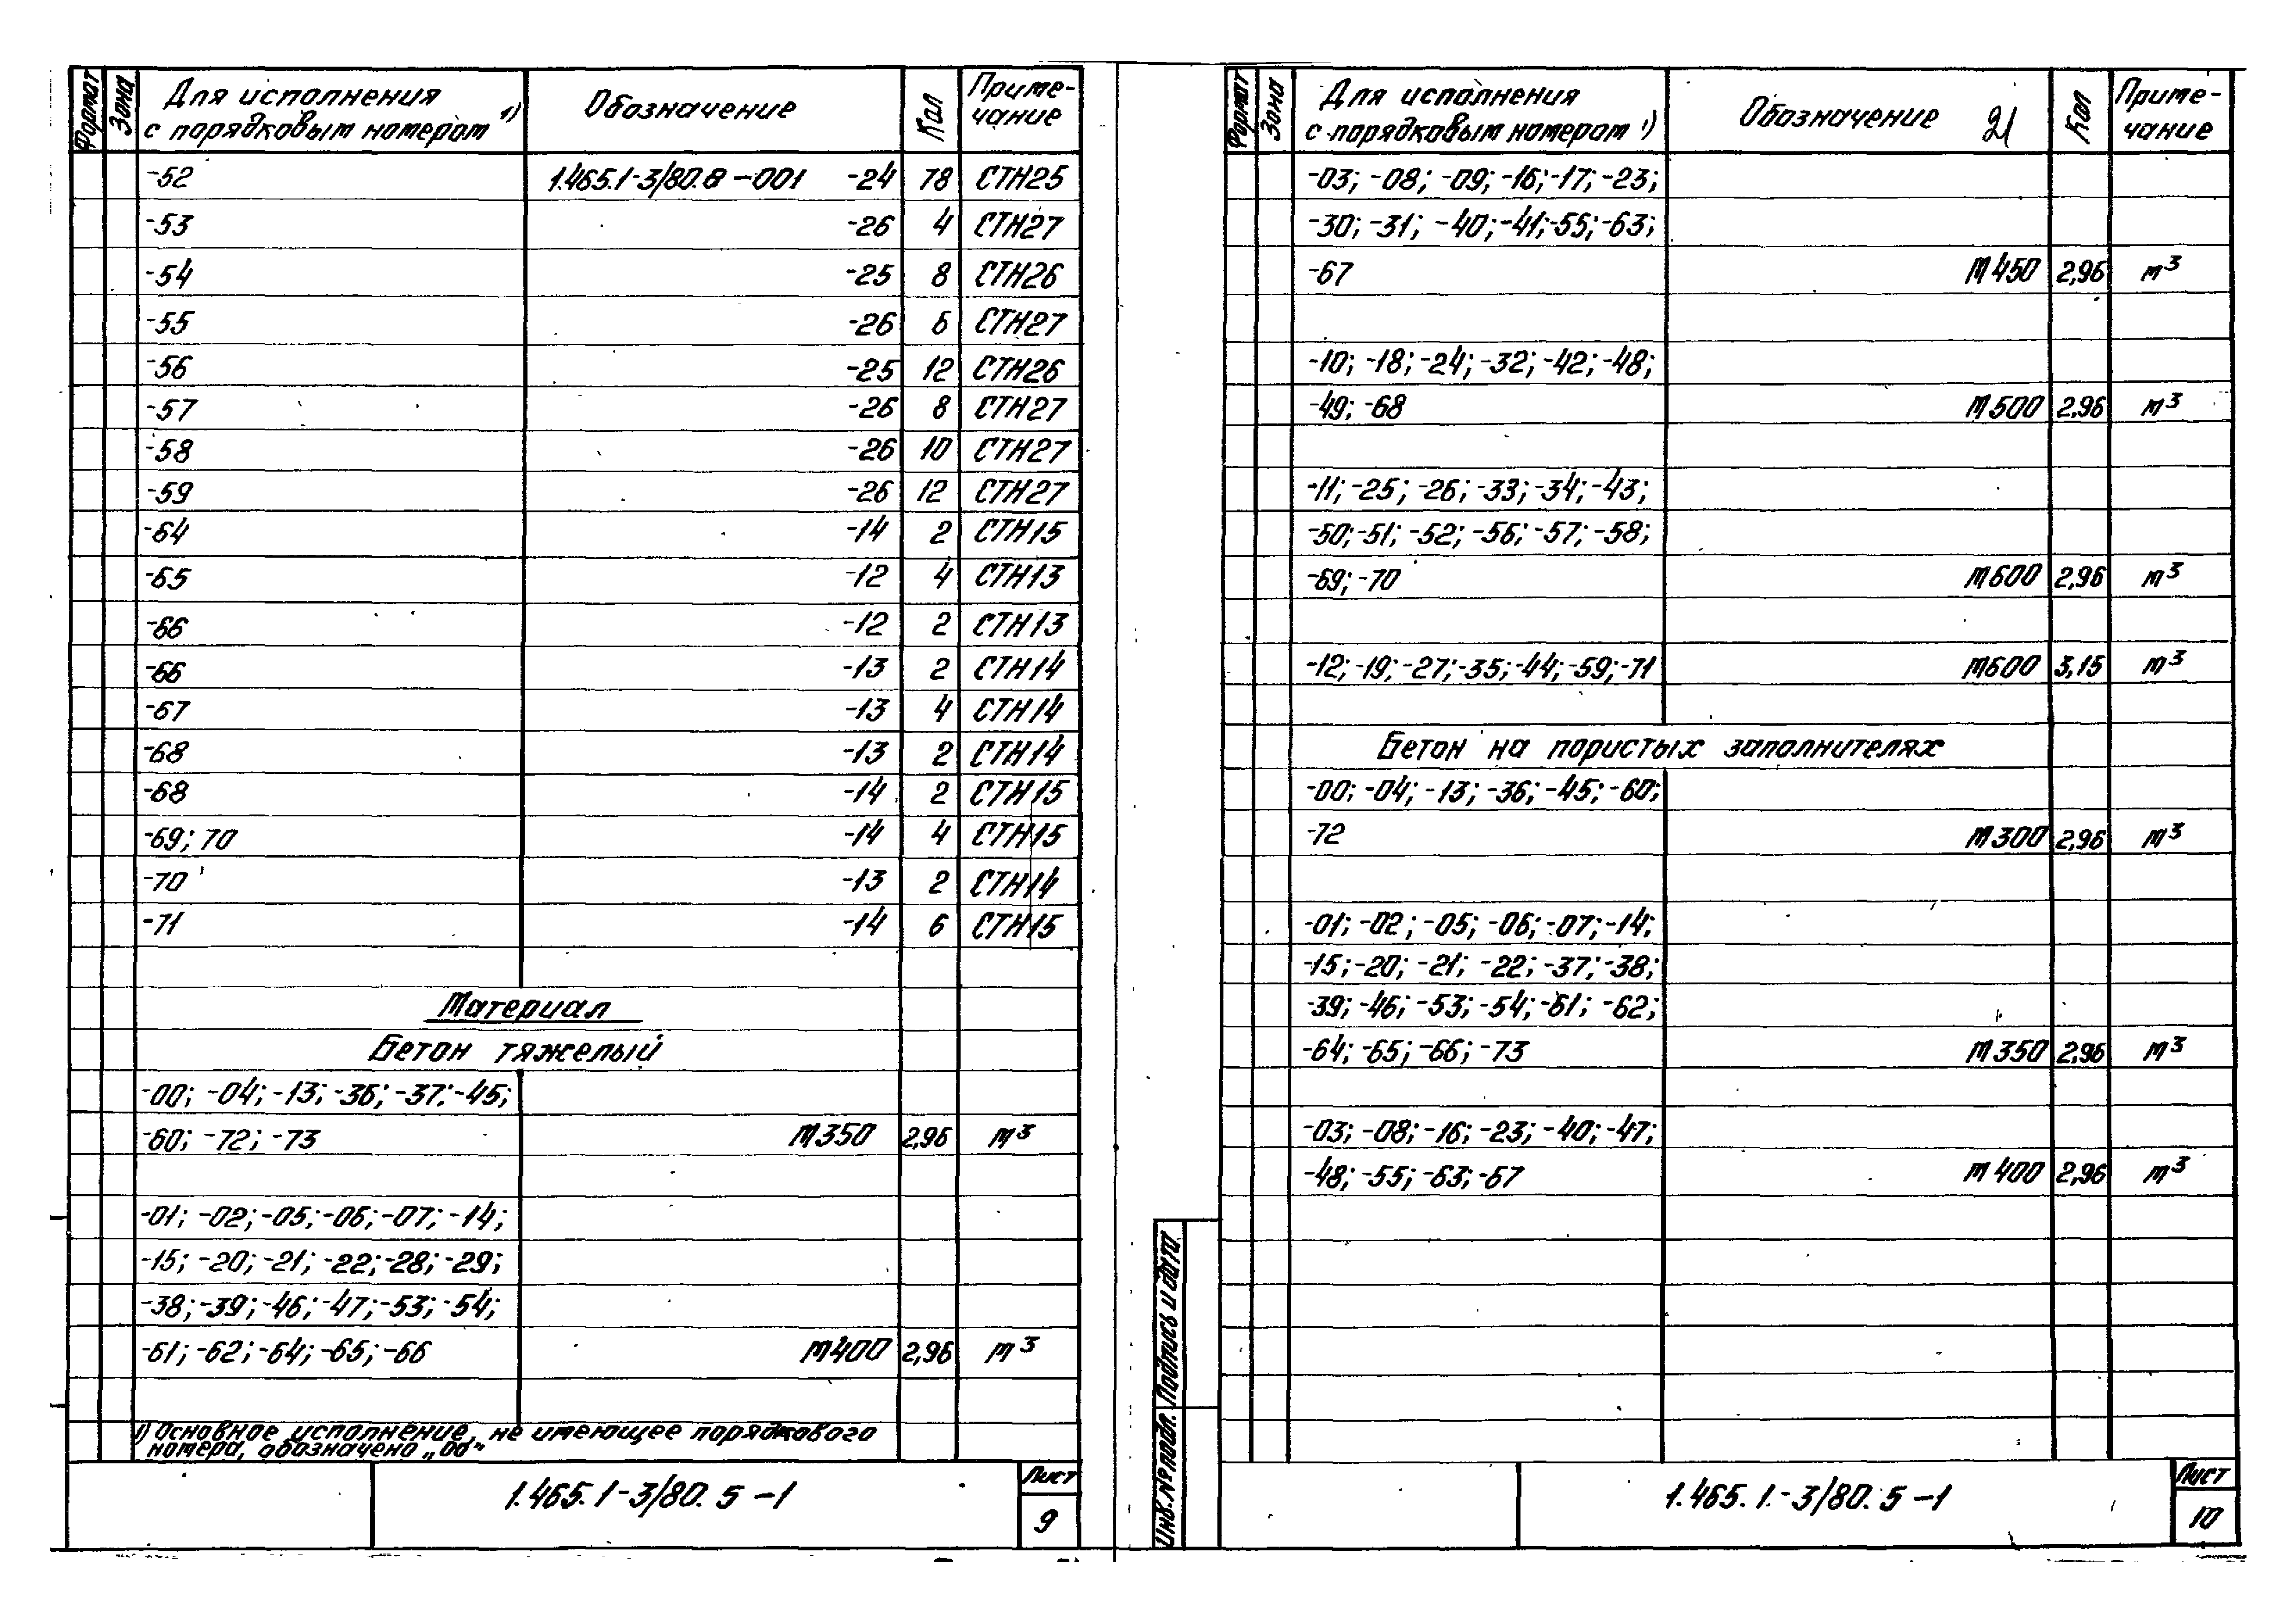 Формат Зона Для исполнения с порядковым номером 1) Обозначение Кол Примечание
-52 1.465.1-3/80.8-001 -24 78 СТН25
-53 -26 4 СТН27
-54 -25 8 СТН26
-55 -26 6 СТН27
-56 -25 12 СТН26
-57 -26 8 СТН27
-58 -26 10 СТН27
-59 -26 12 СТН27
-64 -14 2 СТН15
-65 -12 4 СТН13
-66 -12 2 СТН13
-66 -13 2 СТН14
-67 -13 4 СТН14
-68 -13 2 СТН14
-68 -14 2 СТН15
-69; 70 -14 4 СТН15
-70 -13 2 СТН14
-71 -14 6 СТН15
Материал
Бетон тяжелый
-00; -04; -13; -36; -37; -45;
-60; -72; -73 М350 2,96 м³
-01; -02; -05; -06; -07; -14;
-15; -20; -21; -22; -28; -29;
-38; -39; -46; -47; -53; -54;
-61; -62; -64; -65; -66 М400 2,96 м³
1) Основное исполнение, не имеющее порядкового
номера, обозначено „00"
1.465.1-3/80.5-1 Лист 9
Формат Зона Для исполнения с порядковым номером 1) Обозначение 21 Кол Примечание
-03; -08; -09; -16; -17; -23;
-30; -31; -40; -41; -55; -63;
-67 М450 2,96 м³
-10; -18; -24; -32; -42; -48;
-49; -68 М500 2,96 м³
-11; -25; -26; -33; -34; -43;
-50; -51; -52; -56; -57; -58;
-69; -70 М600 2,96 м³
-12; -19; -27; -35; -44; -59; -71 М600 3,15 м³
Бетон на пористых заполнителях
-00; -04; -13; -36; -45; -60;
-72 М300 2,96 м³
-01; -02; -05; -06; -07; -14;
-15; -20; -21; -22; -37; -38;
-39; -46; -53; -54; -61; -62;
-64; -65; -66; -73 М350 2,96 м³
-03; -08; -16; -23; -40; -47;
-48; -55; -63; -67 М400 2,96 м³
Инв. № подл. Подпись и дата
1.465.1.-3/80.5-1 Лист 10